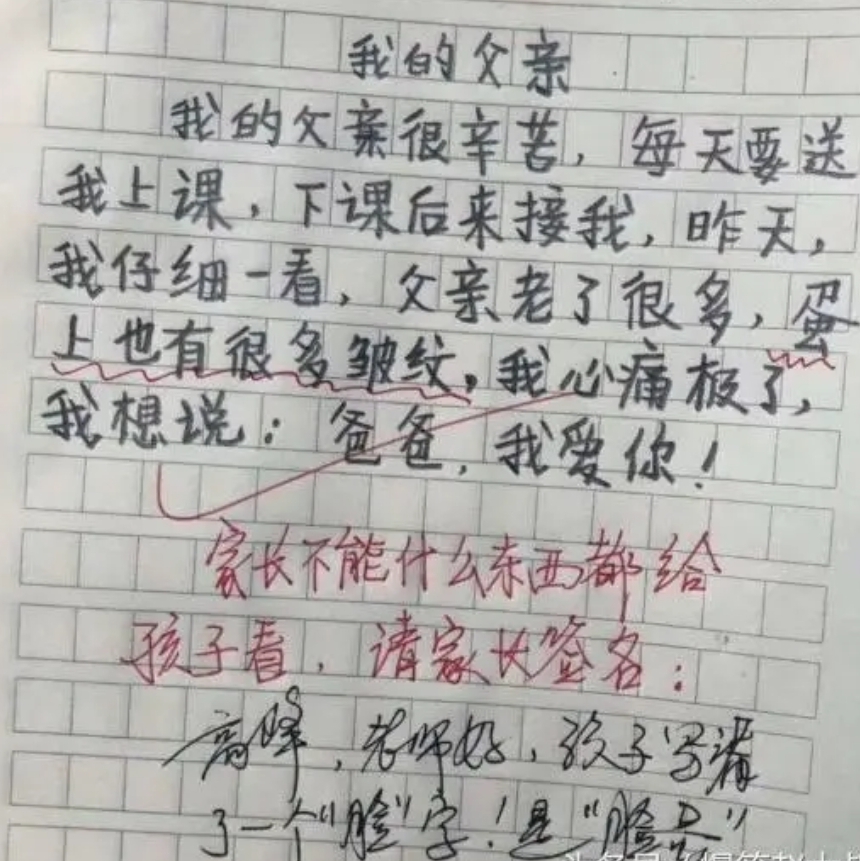 我的父亲
我的父亲很辛苦，每天要送
我上课，下课后来接我，昨天，
我仔细一看，父亲老了很多，蛋
上也有很多皱纹，我心痛极了，
我想说：爸爸，我爱你！
家长不能什么东西都给
孩子看，请家长签名：
高峰，老师好，孩子写漏
了一个“脸”字！是“脸蛋”